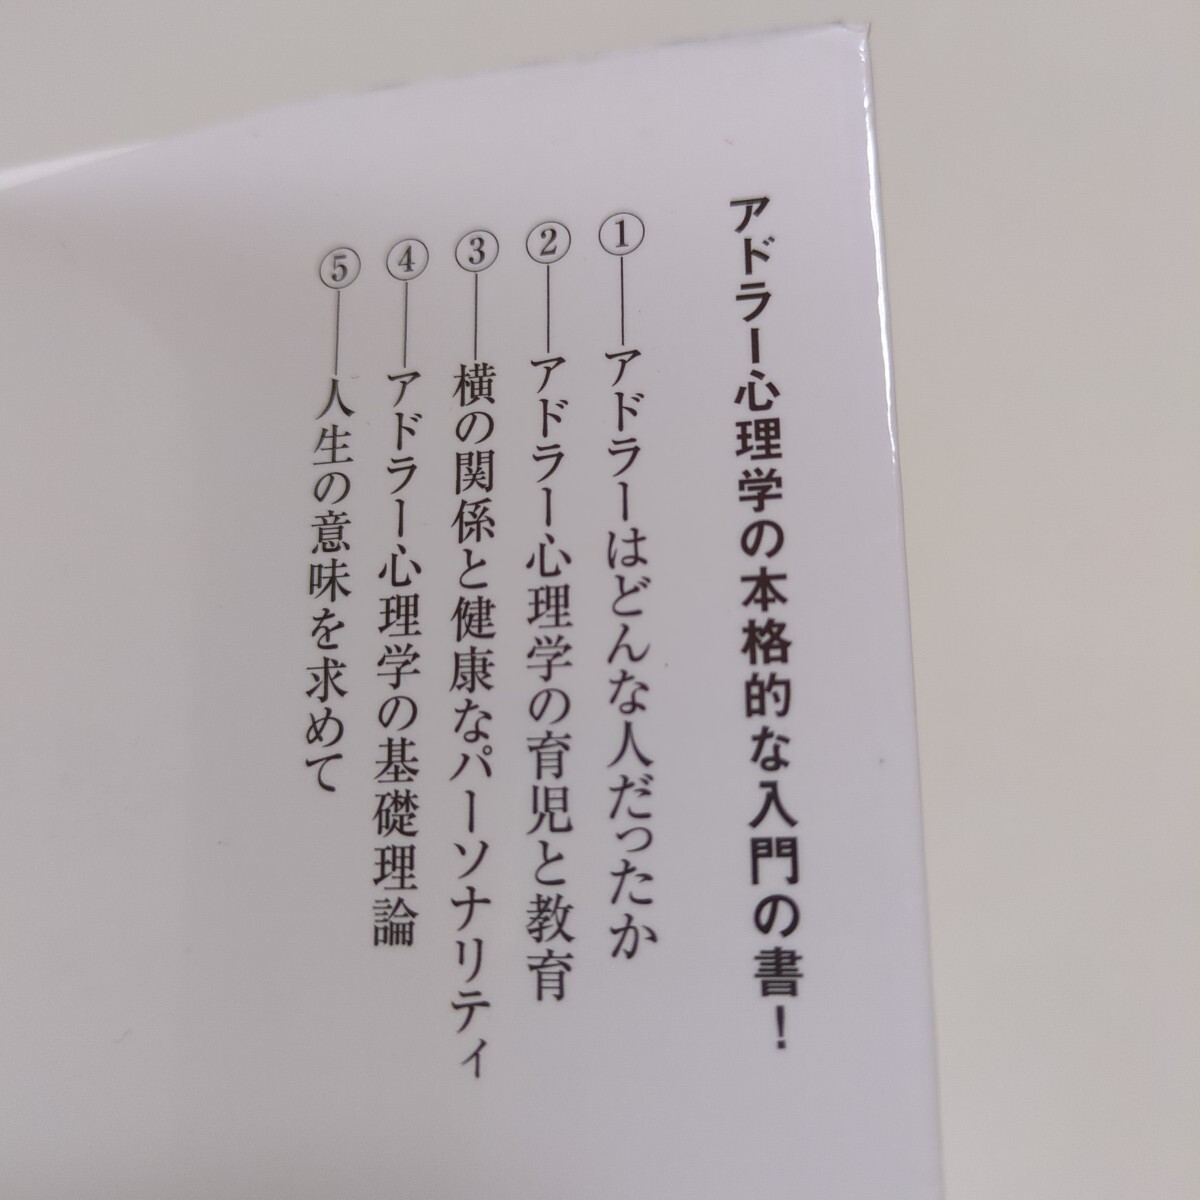 アドラー心理学の本格的な入門の書！
①──アドラーはどんな人だったか
②──アドラー心理学の育児と教育
③──横の関係と健康なパーソナリティ
④──アドラー心理学の基礎理論
⑤──人生の意味を求めて